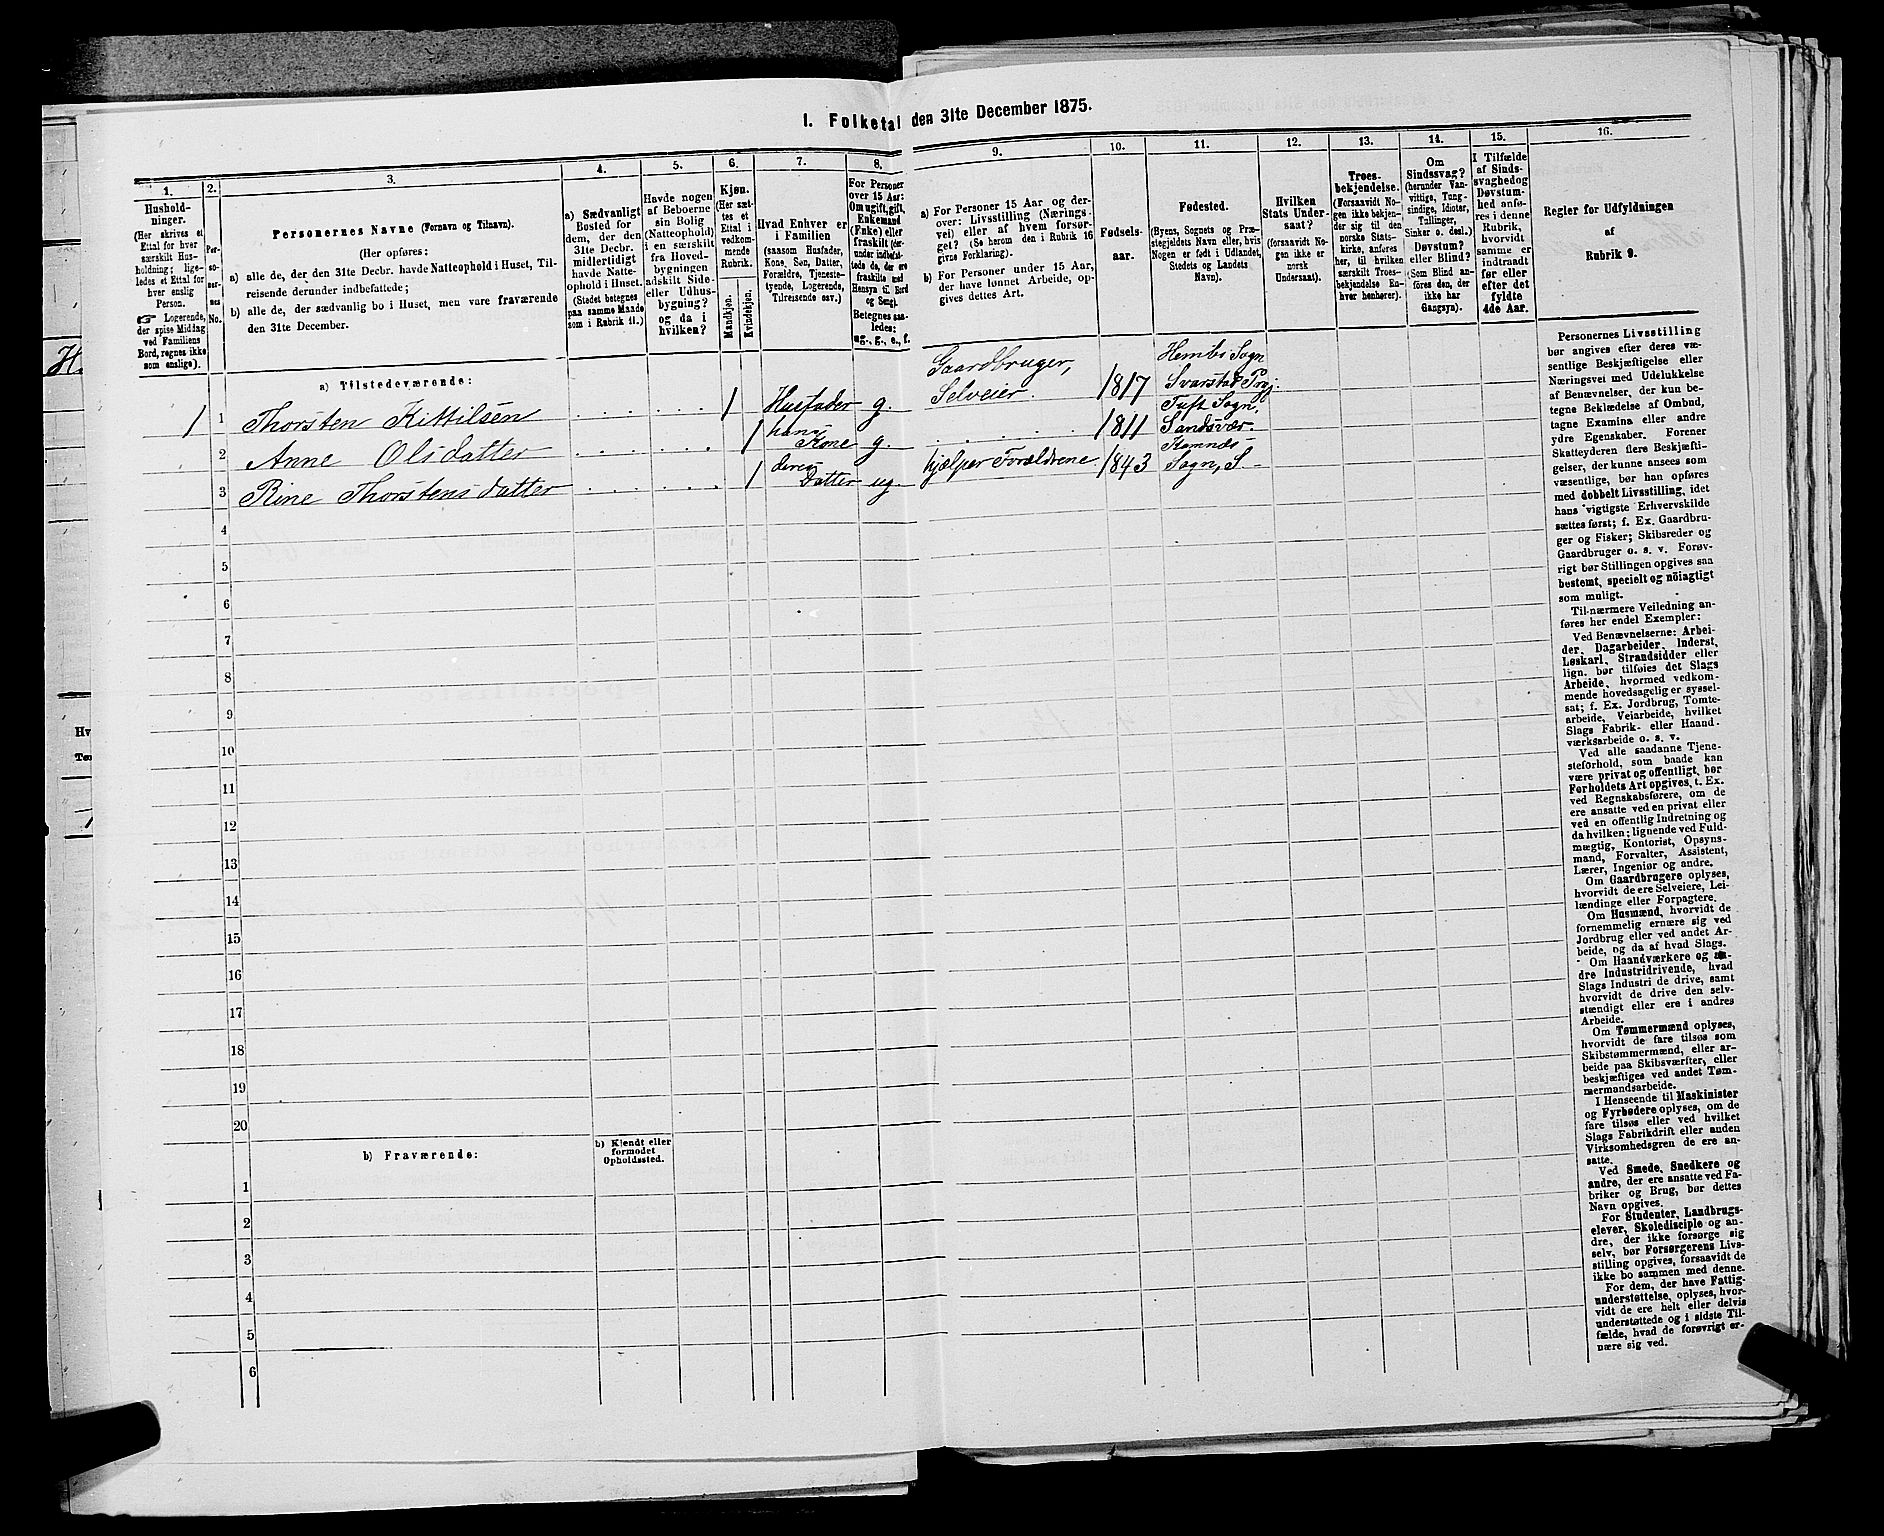 I. Folketal den 31te December 1875.
1.
2.
3.
4.
5.
6.
7.
8.
9.
10.
11.
12.
13.
14.
15.
16.
Hushold-
ninger.
(Her skrives et
Ettal for hver
særskilt Hus-
holdning; lige-
ledes et Ettal for
hver enslig
Person.
☞ Logerende,
der spise Middag
ved Familiens
Bord, regnes ikke
som enslige).
Per-
so-
ner-
nes
No.
Personernes Navne (Fornavn og Tilnavn).
(Her opføres:
a) alle de, der den 31te Decbr. havde Natteophold i Huset, Til-
reisende derunder indbefattede;
b) alle de, der sædvanlig bo i Huset, men vare fraværende
den 31te December.
a) Sædvanligt
Bosted for
dem, der den
31te Decbr.
midlertidigt
havde Natte-
ophold i Huset.
(Stedet betegnes
paa samme Maade
som i Rubrik 11.)
Havde nogen
af Beboerne
sin Bolig
(Natteophold)
i en særskilt
fra Hoved-
bygningen
adskilt Side-
eller Udhus-
bygning?
og da i
hvilken?
Kjøn.
(Her sæt-
tes et
Ettal i
vedkom-
mende
Rubrik.
Mandkjøn.
Kvindekjøn.
Hvad Enhver er
i Familien
(saasom Husfader,
Kone, Søn, Datter,
Forældre, Tjeneste-
tyende, Logerende,
Tilreisende osv.)
For Personer
over 15 Aar:
Om ugift, gift,
Enkemand
(Enke) eller
fraskilt (der-
under indbefat-
tede de, der ere
fraskilte med
Hensyn til Bord
og Seng).
Betegnes saa-
ledes:
ug., g., e., f.
a) For Personer 15 Aar og der-
over: Livsstilling (Nærings-
vei) eller af hvem forsør-
get? (Se herom den i Rubrik 16
givne Forklaring).
b) For Personer under 15 Aar,
der have lønnet Arbeide, op-
gives dettes Art.
Fødsels-
aar.
Fødested.
(Byens, Sognets og Præ-
stegjeldets Navn eller, hvis
Nogen er født i Udlandet,
Stedets og Landets
Navn).
Hvilken
Stats Under-
saat?
(forsaavidt No-
gen ikke er
norsk
Undersaat).
Troes-
bekjendelse.
(Forsaavidt No-
gen ikke bekjen-
der sig til den
norske Stats-
kirke, anføres
her, til hvilken
særskilt Troes-
bekjendelse En-
hver henhører).
Om
Sindssvag?
(herunder Van-
vittige, Tung-
sindige, Idioter,
Tullinger,
Sinker o. desl.)
Døvstum?
eller Blind?
(Som Blind an-
føres den, der
ikke har
Gangsyn).
I Tilfælde
af Sinds-
svaghed og
Døvstum-
hed anfø-
res i denne
Rubrik,
hvorvidt
samme er
indtraadt
før eller
efter det
fyldte
4de Aar.
Regler for Udfyldningen
af
Rubrik 9.
a) Tilstedeværende:
1 1 Thorsten Kittilsen 1 Husfader g. Gaardbruger, Selveier. 1817 Hembs Sogn Svarstad Prgj.
2 Anne Olsdatter 1 hans Kone g. 1811 Tuft Sogn, Sandsvær
3 Rine Thorstensdatter 1 deres Datter ug. hjælper Forældrene 1843 Komnæs Sogn, S
4
5
6
7
8
9
10
11
12
13
14
15
16
17
18
19
20
b) Fraværende:
b) Kjendt eller
formodet
Opholdssted.
1
2
3
4
5
6
Personernes Livsstilling
bør angives efter deres væ-
sentlige Beskjæftigelse eller
Næringsvei med Udelukkelse
af Benævnelser, der kun be-
tegne Beklædelse af Ombud,
tagne Examina eller andre
ydre Egenskaber. Forener
Skatteyderen flere Beskjæfti-
gelser, der kunne ansees som
væsentlige, bør han opføres
med dobbelt Livsstilling, idet
hans vigtigste Erhvervskilde
sættes først; f. Ex. Gaardbru-
ger og Fisker; Skibsreder og
Gaardbruger o. s. v. Forøv-
rigt bør Stillingen opgives saa
bestemt, specielt og nøiagtigt
som muligt.
Til nærmere Veiledning an-
føres her endel Exempler:
Ved Benævnelserne: Arbei-
der, Dagarbeider, Inderst,
Løskarl, Strandsidder eller
lign. bør tilføies det Slags
Arbeide, hvormed vedkom-
mende hovedsagelig er syssel-
sat; f. Ex. Jordbrug, Tomte-
arbeide, Veiarbeide, hvilket
Slags Fabrik- eller Haand-
værksarbeide o. s. v.
Ved alle saadanne Tjene-
steforhold, som baade kan
være privat og offentligt, bør
Forholdets Art opgives, t. Ex.
ved Regnskabsførere, om de
ere ansatte ved en privat eller
ved en offentlig Indretning og
da hvilken; lignende ved Fuld-
mægtig, Kontorist, Opsyns-
mand, Forvalter, Assistent,
Lærer, Ingeniør og andre.
Om Gaardbrugere oplyses,
hvorvidt de ere Selveiere, Lei-
lændinge eller Forpagtere.
Om Husmænd, hvorvidt de
fornemmelig ernære sig ved
Jordbrug eller ved andet Ar-
beide, og da af hvad Slags.
Om Haandværkere og an-
dre Industridrivende, hvad
Slags Industri de drive, samt
hvorvidt de drive den selv-
stændigt eller ere i andres
Arbeide.
Om Tømmermænd oplyses,
hvorvidt de fare tilsøs som
Skibstømmermænd, eller ar-
beide paa Skibsværfter, eller
beskjæftiges ved andet Tøm-
mermandsarbeide.
I Henseende til Maskinister
og Fyrbødere oplyses, om de
fare tilsøs eller ved hvilket
Slags Fabrikdrift eller anden
Virksomhedsgren de ere an-
satte.
Ved Smede, Snedkere og
andre, der ere ansatte ved Fa-
briker og Brug, bør dettes
Navn opgives.
For Studenter, Landbrugs-
elever, Skoledisciple og an-
dre, der ikke forsørge sig
selv, bør Forsørgerens Livs-
stilling opgives, forsaavidt de
ikke bo sammen med denne.
For dem, der have Fattig-
understøttelse, oplyses, hvor-
vidt de ere helt eller delvis
understøttede og i sidste Til-
fælde, hvad de forøvrigt er-
nære sig ved.